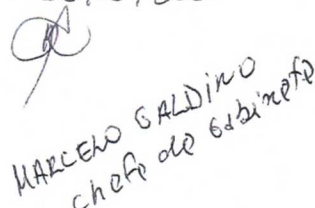 MARCELO GALDINO
chefe de Gabinete